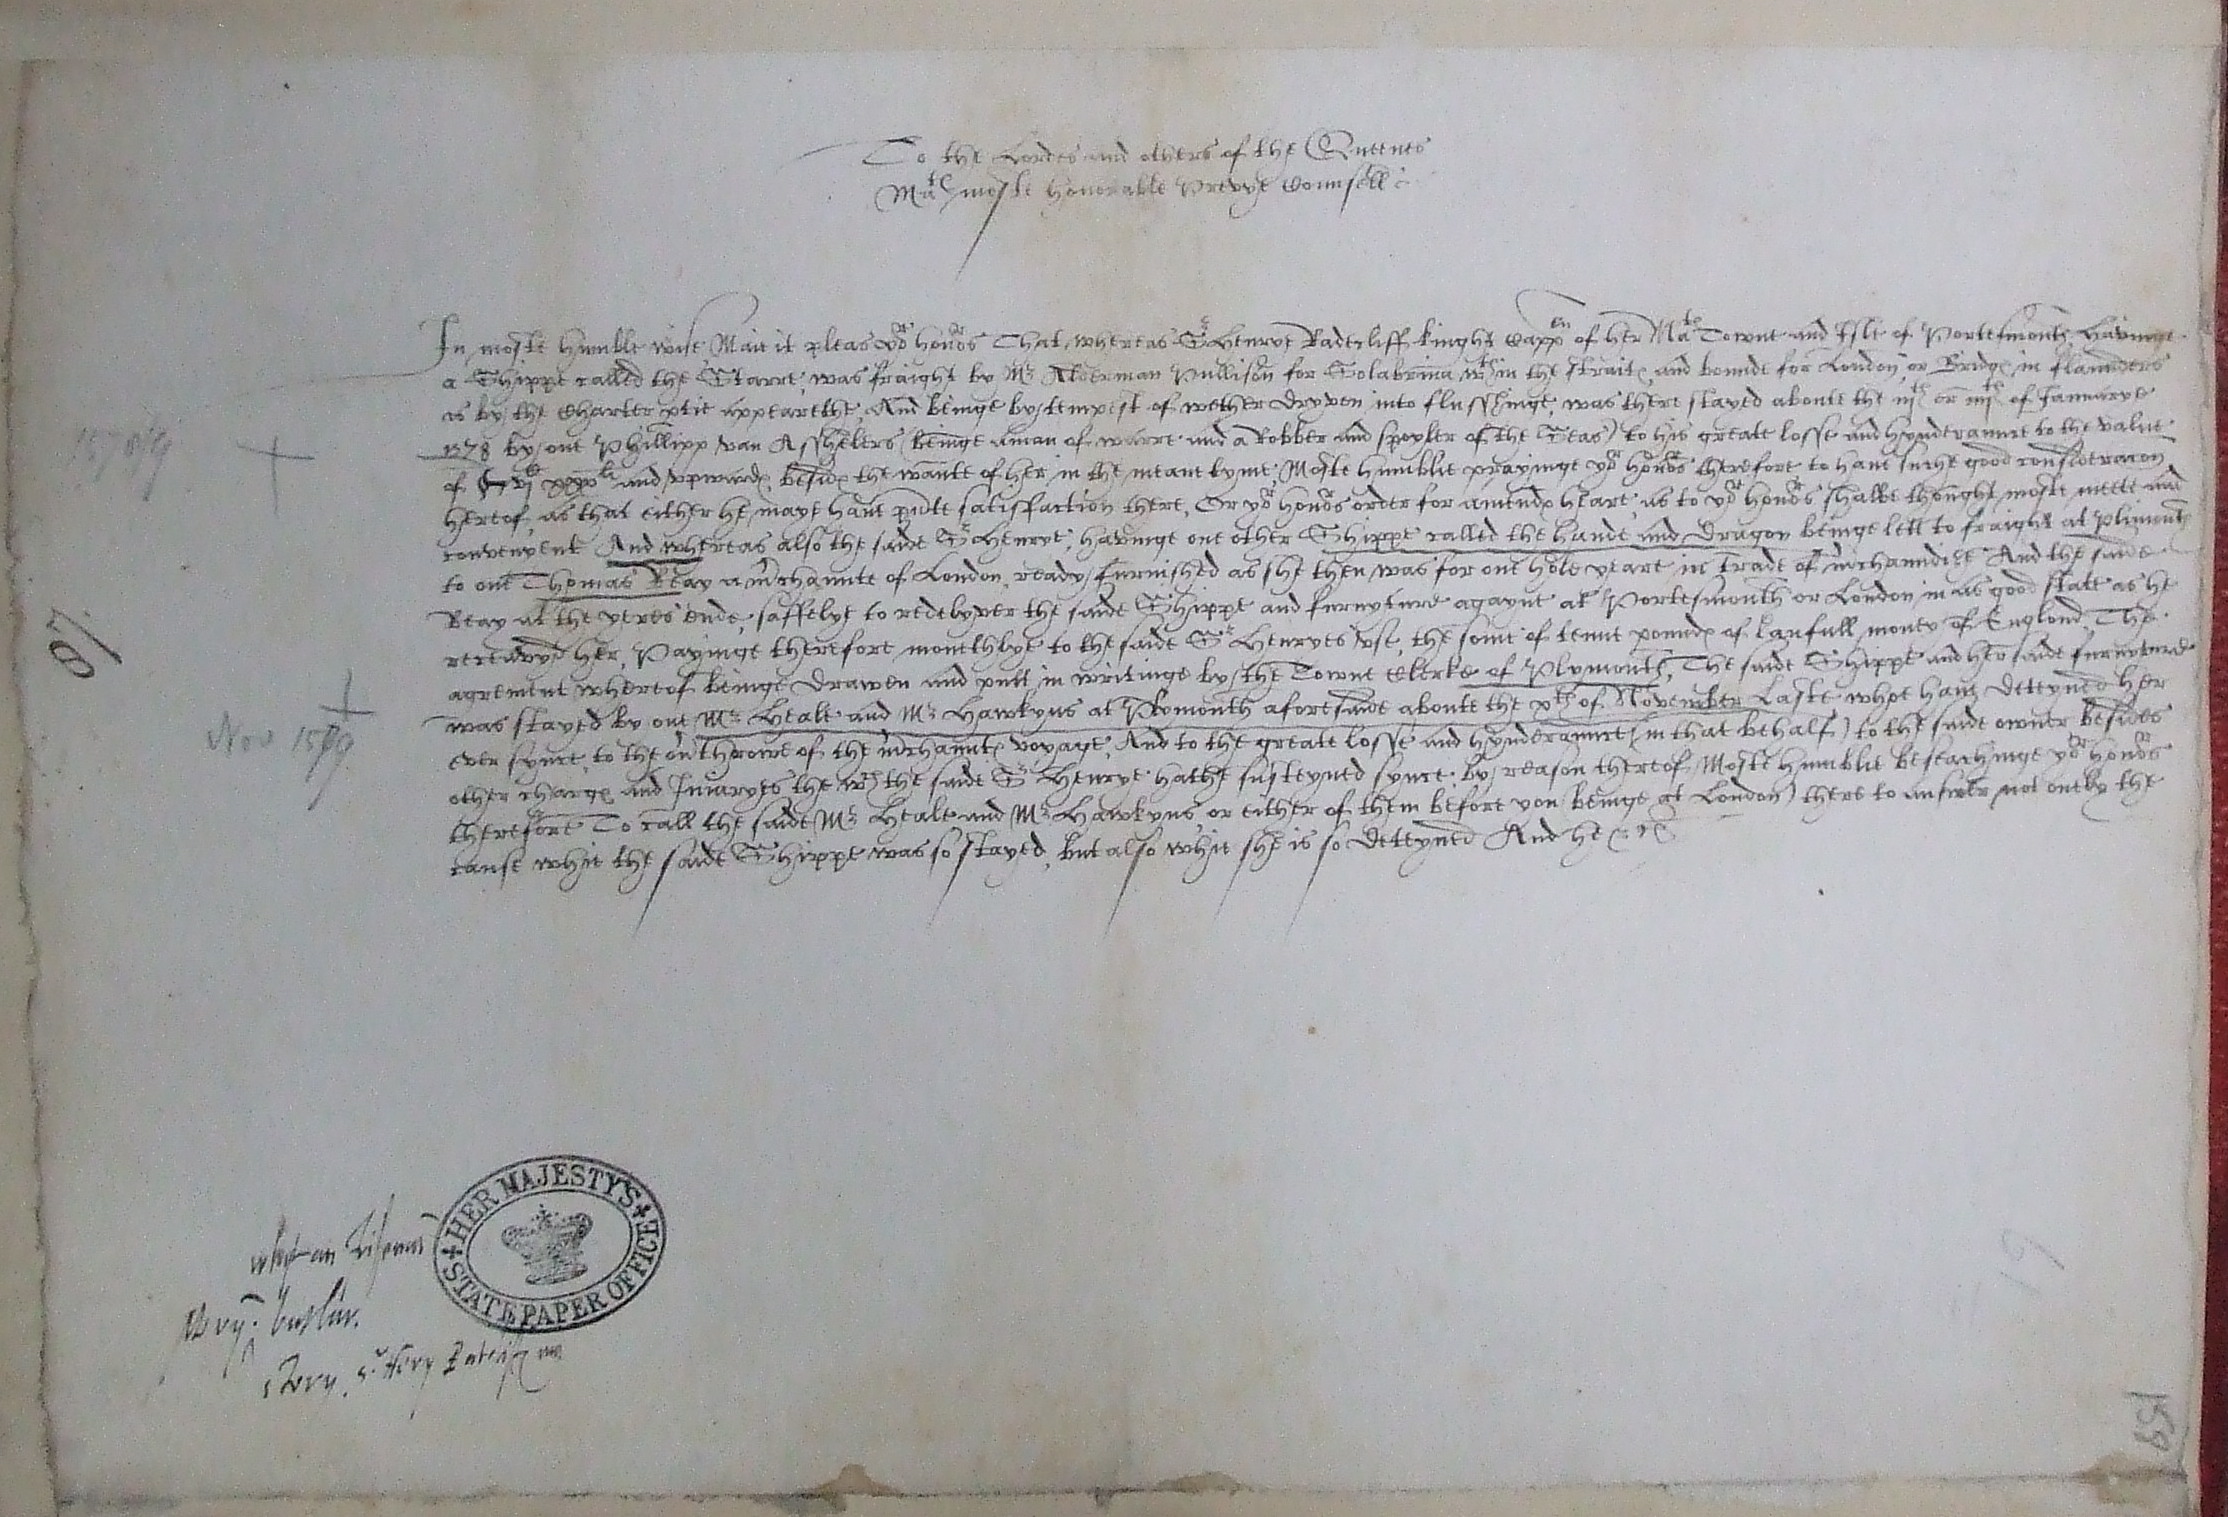 To the Lordes and others of the Queenes
Matie moste honorable Prevye Counsell
In moste humble wise Maie it pleas yor honors That whereas Sr Henrye Radclyff knight Cappen of her Maties Towne and Isle of Portesmouth, Havinge
a Shippe called the Starre, was fraight by Mr Alderman Pullison for Solabrina wthin the straites, and bounde for London or Bridges in flaunders
as by the Charter ptie appearethe And beinge by tempest of wether dryven into flusshinge, was there stayed aboute the iijth or iiijth of Januarye
1578 by one Phillipp van Asshelers (beinge a man of warre and a Robber and spoyler of the Seas) to his greate losse and hynderaunce to the value
of and upwardes, besides the wante of her in the meane tyme, Moste humblie prayinge yor honors therefore to have suche good consideracon
hereof, as that either he maye have pnte satisfaction there, Or yor honors order for amendes heare, as to yor honors shalbe thought moste meete and
convenyent And whereas also the saide Sr Henrye, havinge one other Shippe called the hande and Dragon beinge lett to fraight at Plimouth
to one Thomas Beay a mrchaunte of London, ready furnished as she then was for one hole yeare in trade of mrchaundize And the saide
Beay at the yeres ende, saffelye to redelyver the saide Shippe and furnyture agayne at Portesmouth or London in as good state as he
receavyd her, Payinge therefore monethlye to the saide Sr Henryes use, the some of tenne poundes of laufull money of Englond, The
agrement whereof beinge drawen and putt in writinge by the Towne Clerke of Plymouth, The saide Shippe and her saide furnyture
was stayed by one Mr Heale and Mr Hawkyns at Plymouth aforesaide aboute the xth of November Laste whoe have deteyned her
ever synce, to the overthrowe of the mrchauntes voyage, And to the greate losse and hynderaunce (in that behalf) to the saide owner besides
other charges and Iniuryes the wch the saide Sr Henrye hathe susteyned synce by reason thereof, Moste humblie beseachinge yor honors
therefore To call the saide Mr Heale and Mr Hawkyns or either of them before you (beinge at London) there to answer not onely the
cause whie the saide Shippe was so stayed, but also whie she is so deteyned And he &c
1578/9
Nov 1579
67
HER MAJESTY'S
STATE PAPER OFFICE
Sr Henry
159